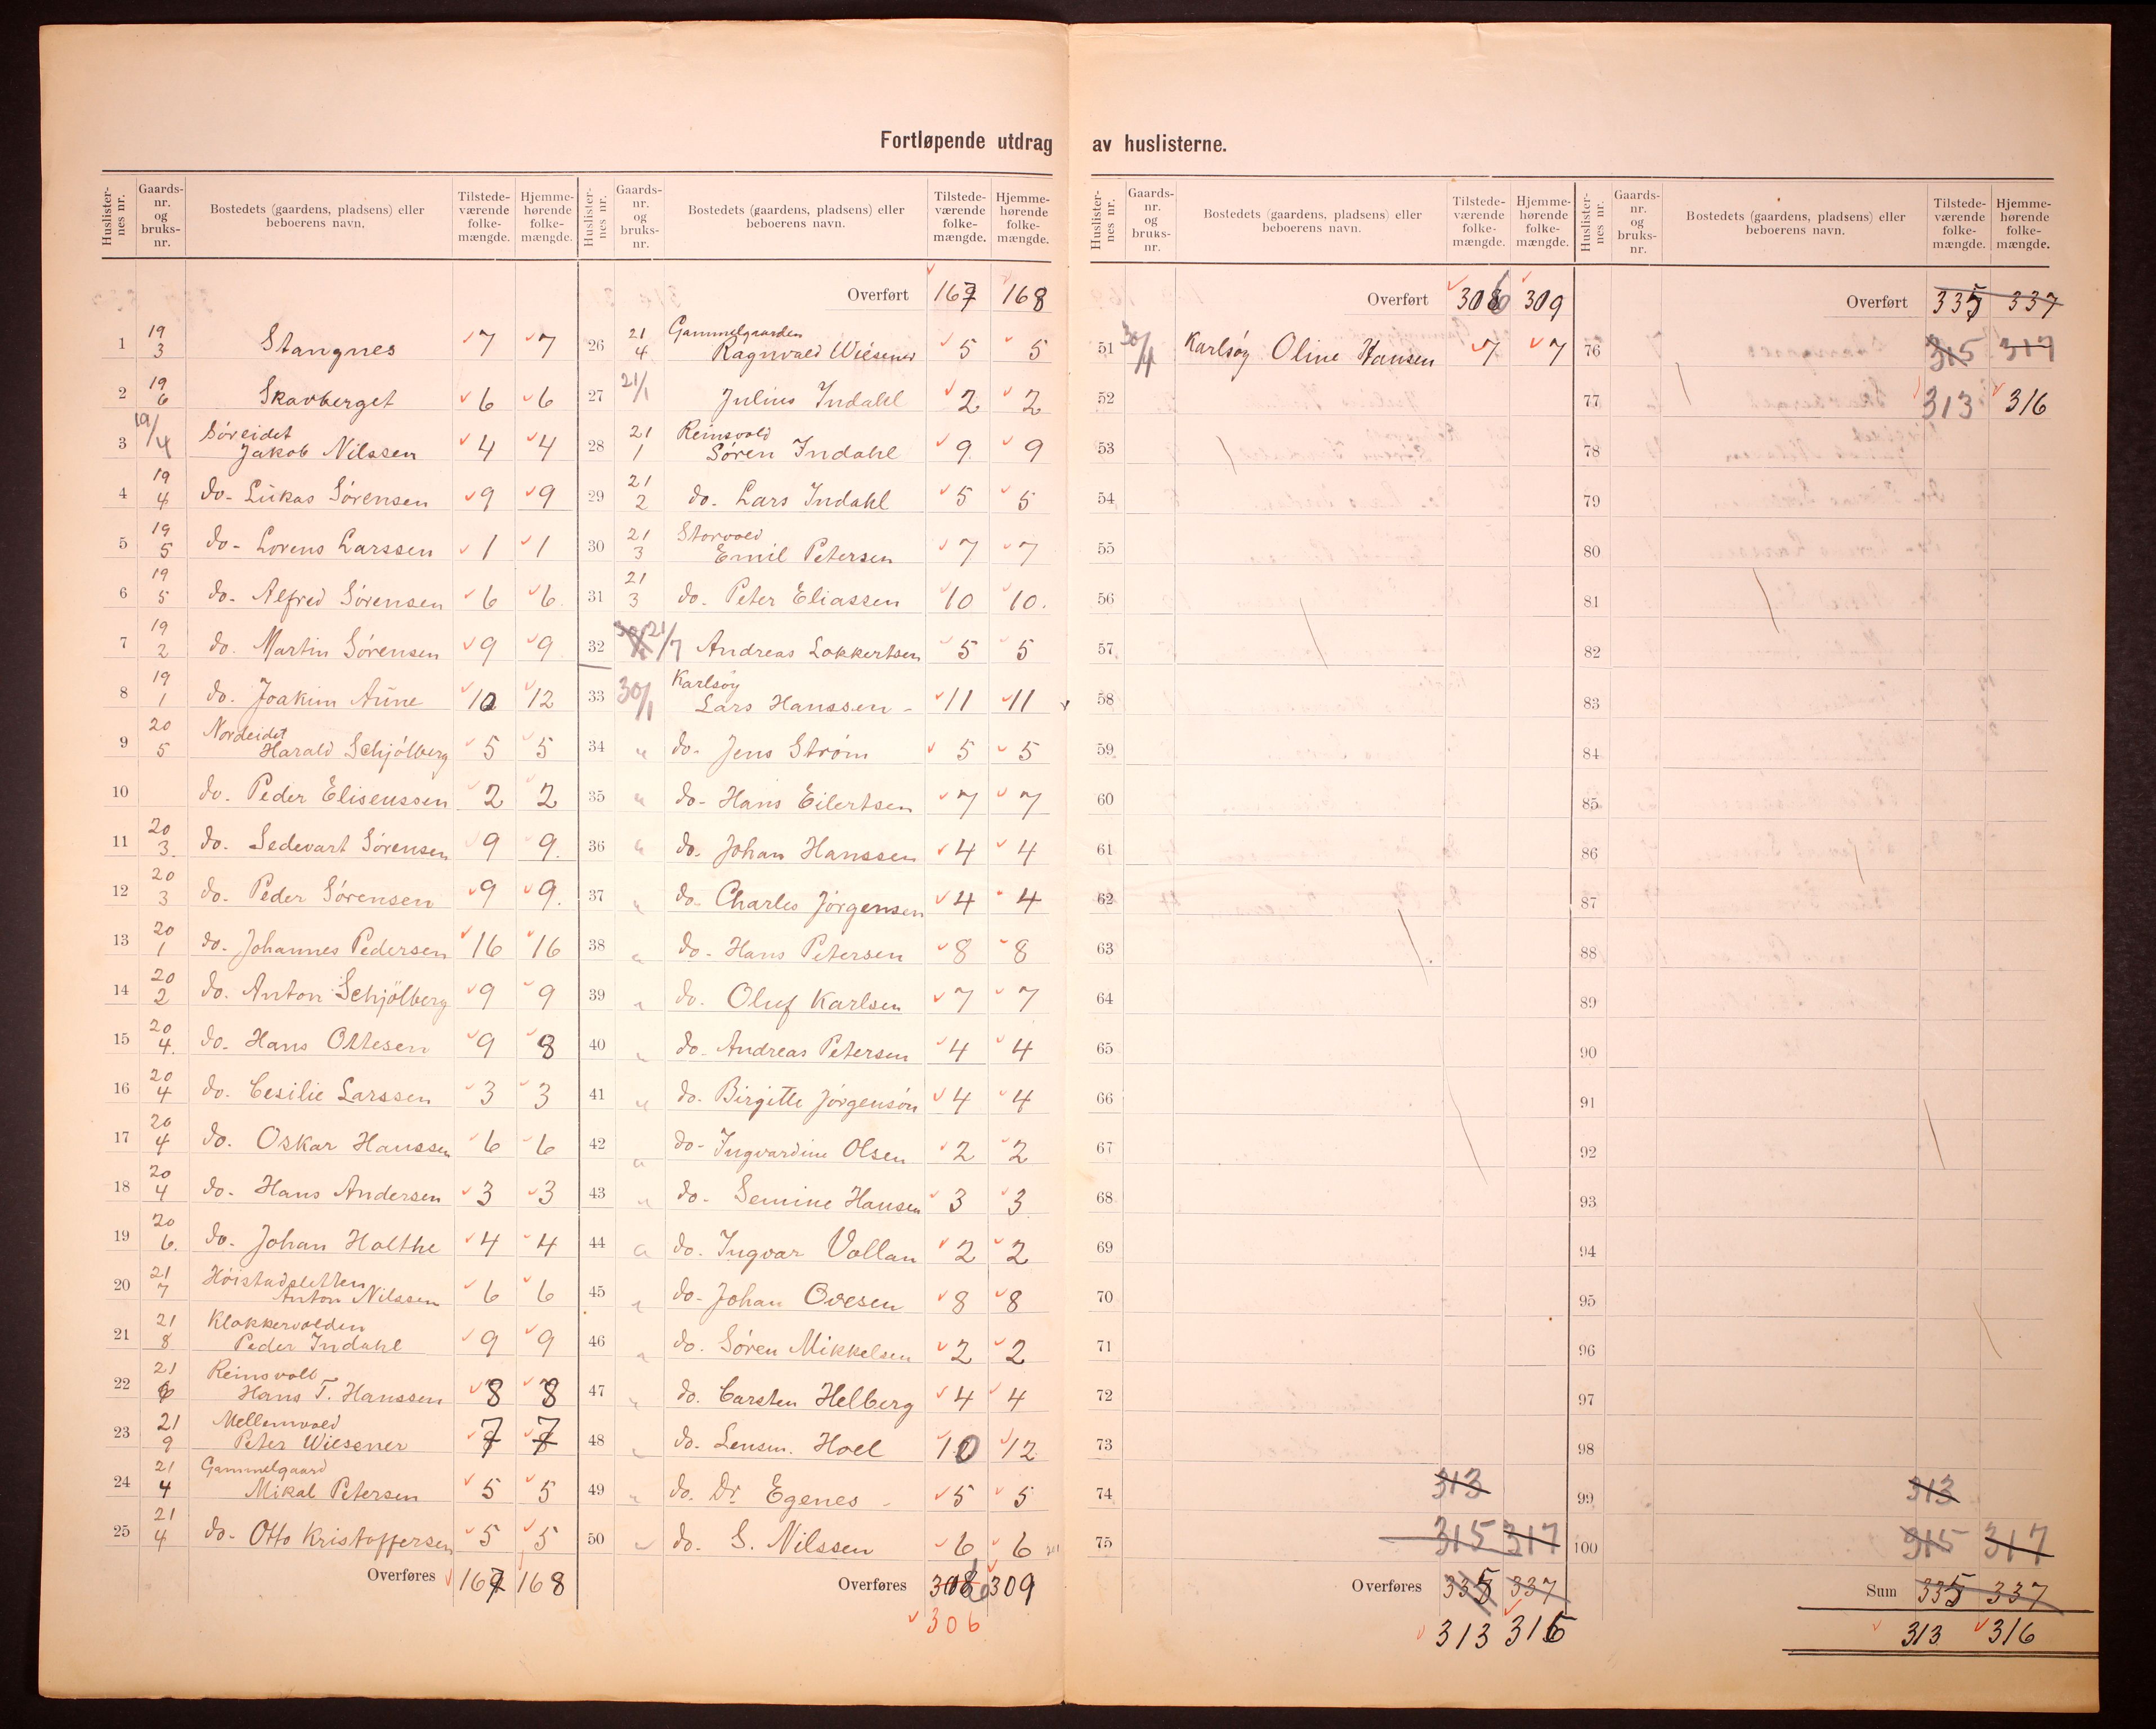 Fortløpende utdrag av huslisterne.
Huslister-nes nr. Gaards-nr. og bruks-nr. Bostedets (gaardens, pladsens) eller beboerens navn. Tilstede-værende folke-mængde. Hjemme-hørende folke-mængde.
1 19/3 Stangnes 7 7
2 19/6 Skavberget 6 6
3 19/4 Søreidet
Jakob Nilssen 4 4
4 19/4 do- Lukas Sørensen 9 9
5 19/5 do- Lorens Larssen 1 1
6 19/5 do- Alfred Sørensen 6 6
7 19/2 do. Martin Sørensen 9 9
8 19/1 do. Joakim Aune 10 12
9 20/5 Nordeidet
Harald Schjølberg 5 5
10 do. Peder Eliseussen 2 2
11 20/3 do. Sedevart Sørensen 9 9
12 20/3 do. Peder Sørensen 9 9
13 20/1 do. Johannes Pedersen 16 16
14 20/2 do. Anton Schjølberg 9 9
15 20/4 do. Hans Ottesen 9 8
16 20/4 do. Cesilie Larssen 3 3
17 20/4 do. Oskar Hanssen 6 6
18 20/4 do- Hans Andersen 3 3
19 20/6 do- Johan Holthe 4 4
20 21/7 Høistadsletten
Anton Nilssen 6 6
21 21/8 Klokkervolden
Peder Indahl 9 9
22 21/6 Reinsvoll
Hans T. Hanssen 8 8
23 21/9 Mellemvold
Peter Wiesener 7 7
24 21/4 Gammelgaard
Mikal Petersen 5 5
25 21/4 do- Otto Kristoffersen 5 5
Overføres 167 168
Huslister-nes nr. Gaards-nr. og bruks-nr. Bostedets (gaardens, pladsens) eller beboerens navn. Tilstede-værende folke-mængde. Hjemme-hørende folke-mængde.
Overført 167 168
26 21/4 Gammelgaarden
Ragnvald Wiesener 5 5
27 21/1 Julius Indahl 2 2
28 21/1 Reinsvold
Søren Indahl 9 9
29 21/2 do. Lars Indahl 5 5
30 21/3 Storvold
Emil Petersen 7 7
31 21/3 do. Peter Eliassen 10 10
32 21/7 Andreas Lokkertsen 5 5
33 30/1 Karlsøy
Lars Hanssen - 11 11
34 " do- Jens Strøm 5 5
35 " do- Hans Eilertsen 7 7
36 " do. Johan Hanssen 4 4
37 " do- Charles Jørgensen 4 4
38 " do- Hans Petersen 8 8
39 " do. Oluf Karlsen 7 7
40 " do- Andreas Petersen 4 4
41 " do. Birgitte Jørgensøn 4 4
42 " do- Ingvardine Olsen 2 2
43 " do- Semine Hansen 3 3
44 " do. Ingvar Vollan 2 2
45 " do- Johan Ovesen 8 8
46 " do. Søren Mikkelsen 2 2
47 " do. Carsten Helberg 4 4
48 " do. Lensm. Hoel 10 12
49 " do. Dr. Egenes - 5 5
50 " do. S. Nilssen 6 6
Overføres 306 309
306
Huslister-nes nr. Gaards-nr. og bruks-nr. Bostedets (gaardens, pladsens) eller beboerens navn. Tilstede-værende folke-mængde. Hjemme-hørende folke-mængde.
Overført 306 309
51 30/4 Karlsøy Oline Hansen 7 7
52
53
54
55
56
57
58
59
60
61
62
63
64
65
66
67
68
69
70
71
72
73
74 313
75 315 317
Overføres 335 337
313 316
Huslister-nes nr. Gaards-nr. og bruks-nr. Bostedets (gaardens, pladsens) eller beboerens navn. Tilstede-værende folke-mængde. Hjemme-hørende folke-mængde.
Overført 335 337
76 315 317
77 313 316
78
79
80
81
82
83
84
85
86
87
88
89
90
91
92
93
94
95
96
97
98
99 313
100 315 317
Sum 335 337
313 316